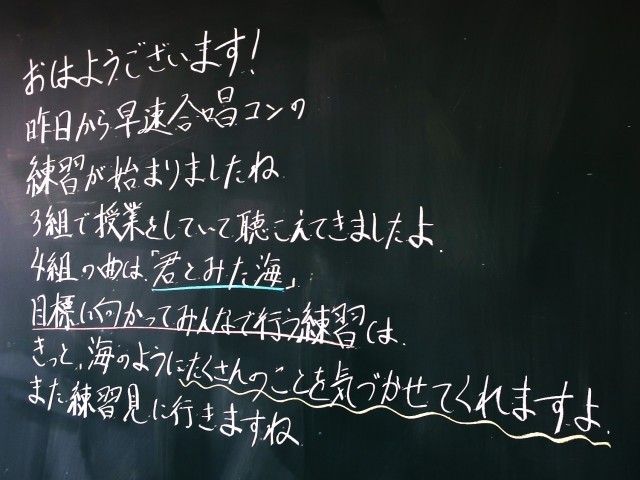 おはようございます!
昨日から早速合唱コンの
練習が始まりましたね
3組で授業をしていて聴こえてきましたよ.
4組の曲は「君とみた海」
目標に向かってみんなで行う練習は.
きっと、海のようにたくさんのことを気づかせてくれますよ.
また練習見に行きますね